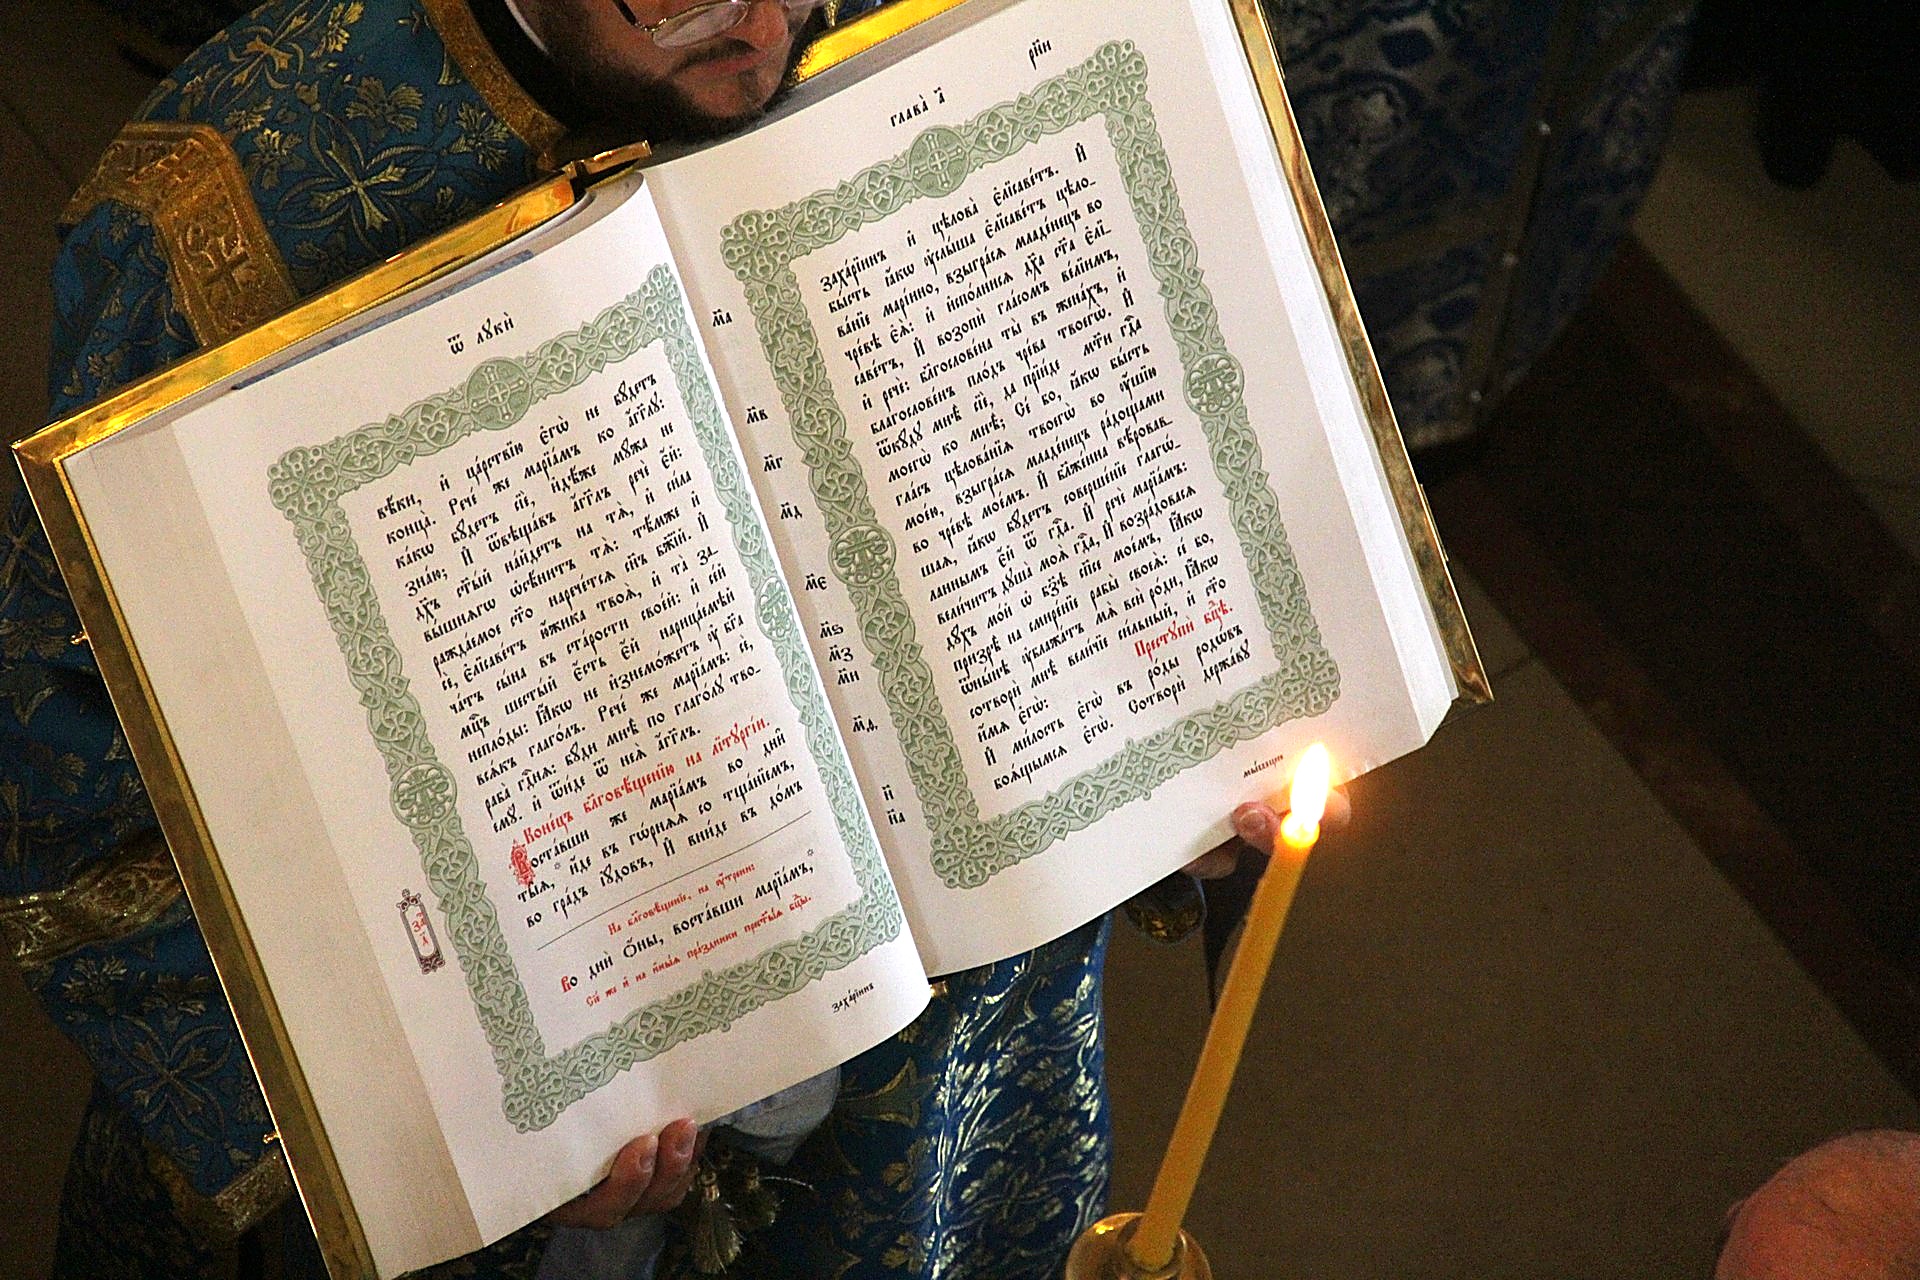 Ѿ лꙋкѝ
вѣ́ки, и҆ ца́рствїю є҆гѡ̀ не бꙋ́детъ
конца̀. Рече́ же марїа́мъ ко а҆́гг҃лꙋ:
ка́кѡ бꙋ́детъ сїѐ, и҆дѣ́же мꙋ́жа не
зна́ю; И҆ ѿвѣща́въ а҆́гг҃лъ речѐ є҆́й:
дх҃ъ ст҃ы́й на́йдетъ на тѧ̀, и҆ си́ла
вы́шнѧгѡ ѡ҆сѣни́тъ тѧ̀: тѣ́мже и҆
ражда́емое ст҃о нарече́тсѧ сн҃ъ бж҃їй. И҆
сѐ, є҆лїсаве́тъ ю҆́жика твоѧ̀, и҆ та̀ за-
ча́тъ сы́на въ ста́рости свое́й: и҆ се́й
мц҃ъ шесты́й є҆́сть є҆́й нарица́емѣй
непло́ды: Ꙗ҆́кѡ не и҆знемо́жетъ ᲂу҆ бг҃а
всѧ́къ глаго́лъ. Рече́ же марїа́мъ: сѐ,
раба̀ гдⷭ҇нѧ: бꙋ́ди мнѣ̀ по глаго́лꙋ тво-
емꙋ̀. и҆ ѿи́де ѿ неѧ̀ а҆́гг҃лъ.
Коне́цъ бл҃говѣ́щенїю на лїтꙋргі́и.
Воста́вши же марїа́мъ во дни̑
ты̑ѧ, и҆́де въ гѡ́рнѧѧ со тща́нїемъ,
во гра́дъ і҆ꙋ́довъ, И҆ вни́де въ до́мъ
За҄ а҃
На бл҃говѣ́щенїе, на ᲂу҆́трени:
Во дни̑ ѻ҆́ны, воста́вши марїа́мъ,
Сїе́ же и҆ на и҆ны̑ѧ пра́здники прест҃ы́ѧ бц҃ы.
заха́рїинъ
глава̀ а҃
рни
ма
мв
мг
мд
ме
мѕ
мз
ми
мѳ
н
на
заха́рїинъ и҆ цѣлова̀ є҆лїсаве́тъ. И҆
бы́сть ꙗ҆́кѡ ᲂу҆слы́ша є҆лїсаве́тъ цѣло-
ва́нїе марі́ино, взыгра́сѧ младе́нецъ во
чре́вѣ є҆ѧ̀: и҆ и҆спо́лнисѧ дх҃а ст҃а є҆лї-
саве́тъ, И҆ возопѝ гла́сомъ ве́лїимъ,
и҆ речѐ: блгⷭ҇ове́на ты̀ въ жена́хъ, и҆
благослове́нъ пло́дъ чре́ва твоегѡ̀. И҆
ѿкꙋ́дꙋ мнѣ̀ сїѐ, да прїи́де мт҃и гдⷭ҇а
моегѡ̀ ко мнѣ̀; Се́ бо, ꙗ҆́кѡ бы́сть
гла́съ цѣлова́нїѧ твоегѡ̀ во ᲂу҆́шїю
мое́ю, взыгра́сѧ младе́нецъ ра́дощами
во чре́вѣ мое́мъ. И҆ бл҃же́нна вѣ́ровав-
шаѧ, ꙗ҆́кѡ бꙋ́детъ соверше́нїе глагѡ́-
ланнымъ є҆́й ѿ гдⷭ҇а. И҆ речѐ марїа́мъ:
вели́читъ дꙋша̀ моѧ̀ гдⷭ҇а, И҆ возра́довасѧ
дꙋ́хъ мо́й ѡ҆ бз҃ѣ сп҃сѣ мое́мъ, Ꙗ҆́кѡ
призрѣ̀ на смире́нїе рабы̀ своеѧ̀: се́ бо,
ѿнн҃ѣ ᲂу҆блажа́тъ мѧ̀ всѝ ро́ди, Ꙗ҆́кѡ
сотворѝ мнѣ̀ вели́чїе си́льный, и҆ ст҃о
и҆́мѧ є҆гѡ̀: Престꙋпѝ бц҃ѣ.
И҆ ми́лость є҆гѡ̀ въ ро́ды родѡ́въ
боѧ́щымсѧ є҆гѡ̀. Сотворѝ держа́вꙋ
мы́шцею